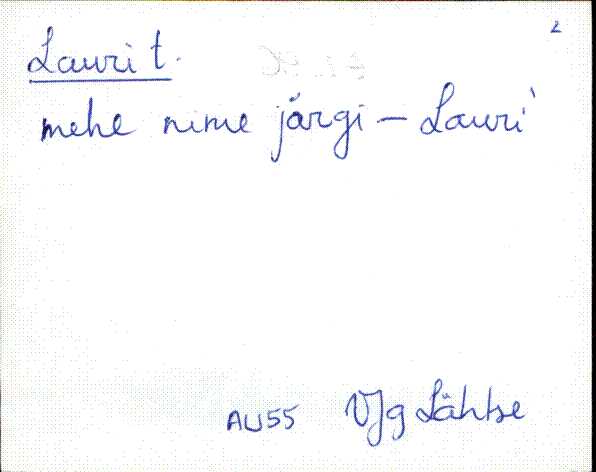 2
Lauri t.
mehe nime järgi – Lauri
AU55 VJg Lähtse